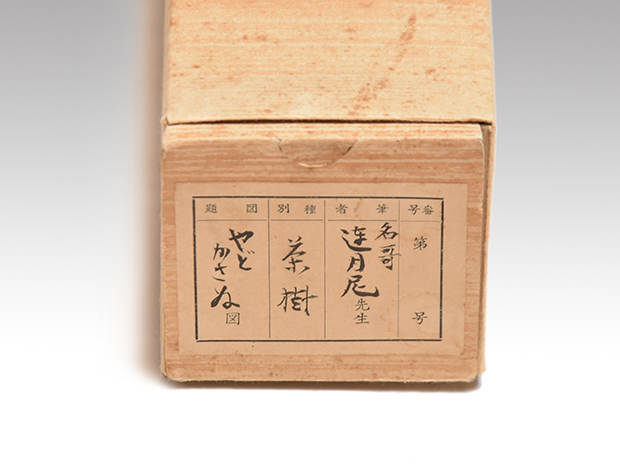 番号
第 号
筆者
名哥
蓮月尼先生
種別
茶樹
図題
やど
かさぬ図